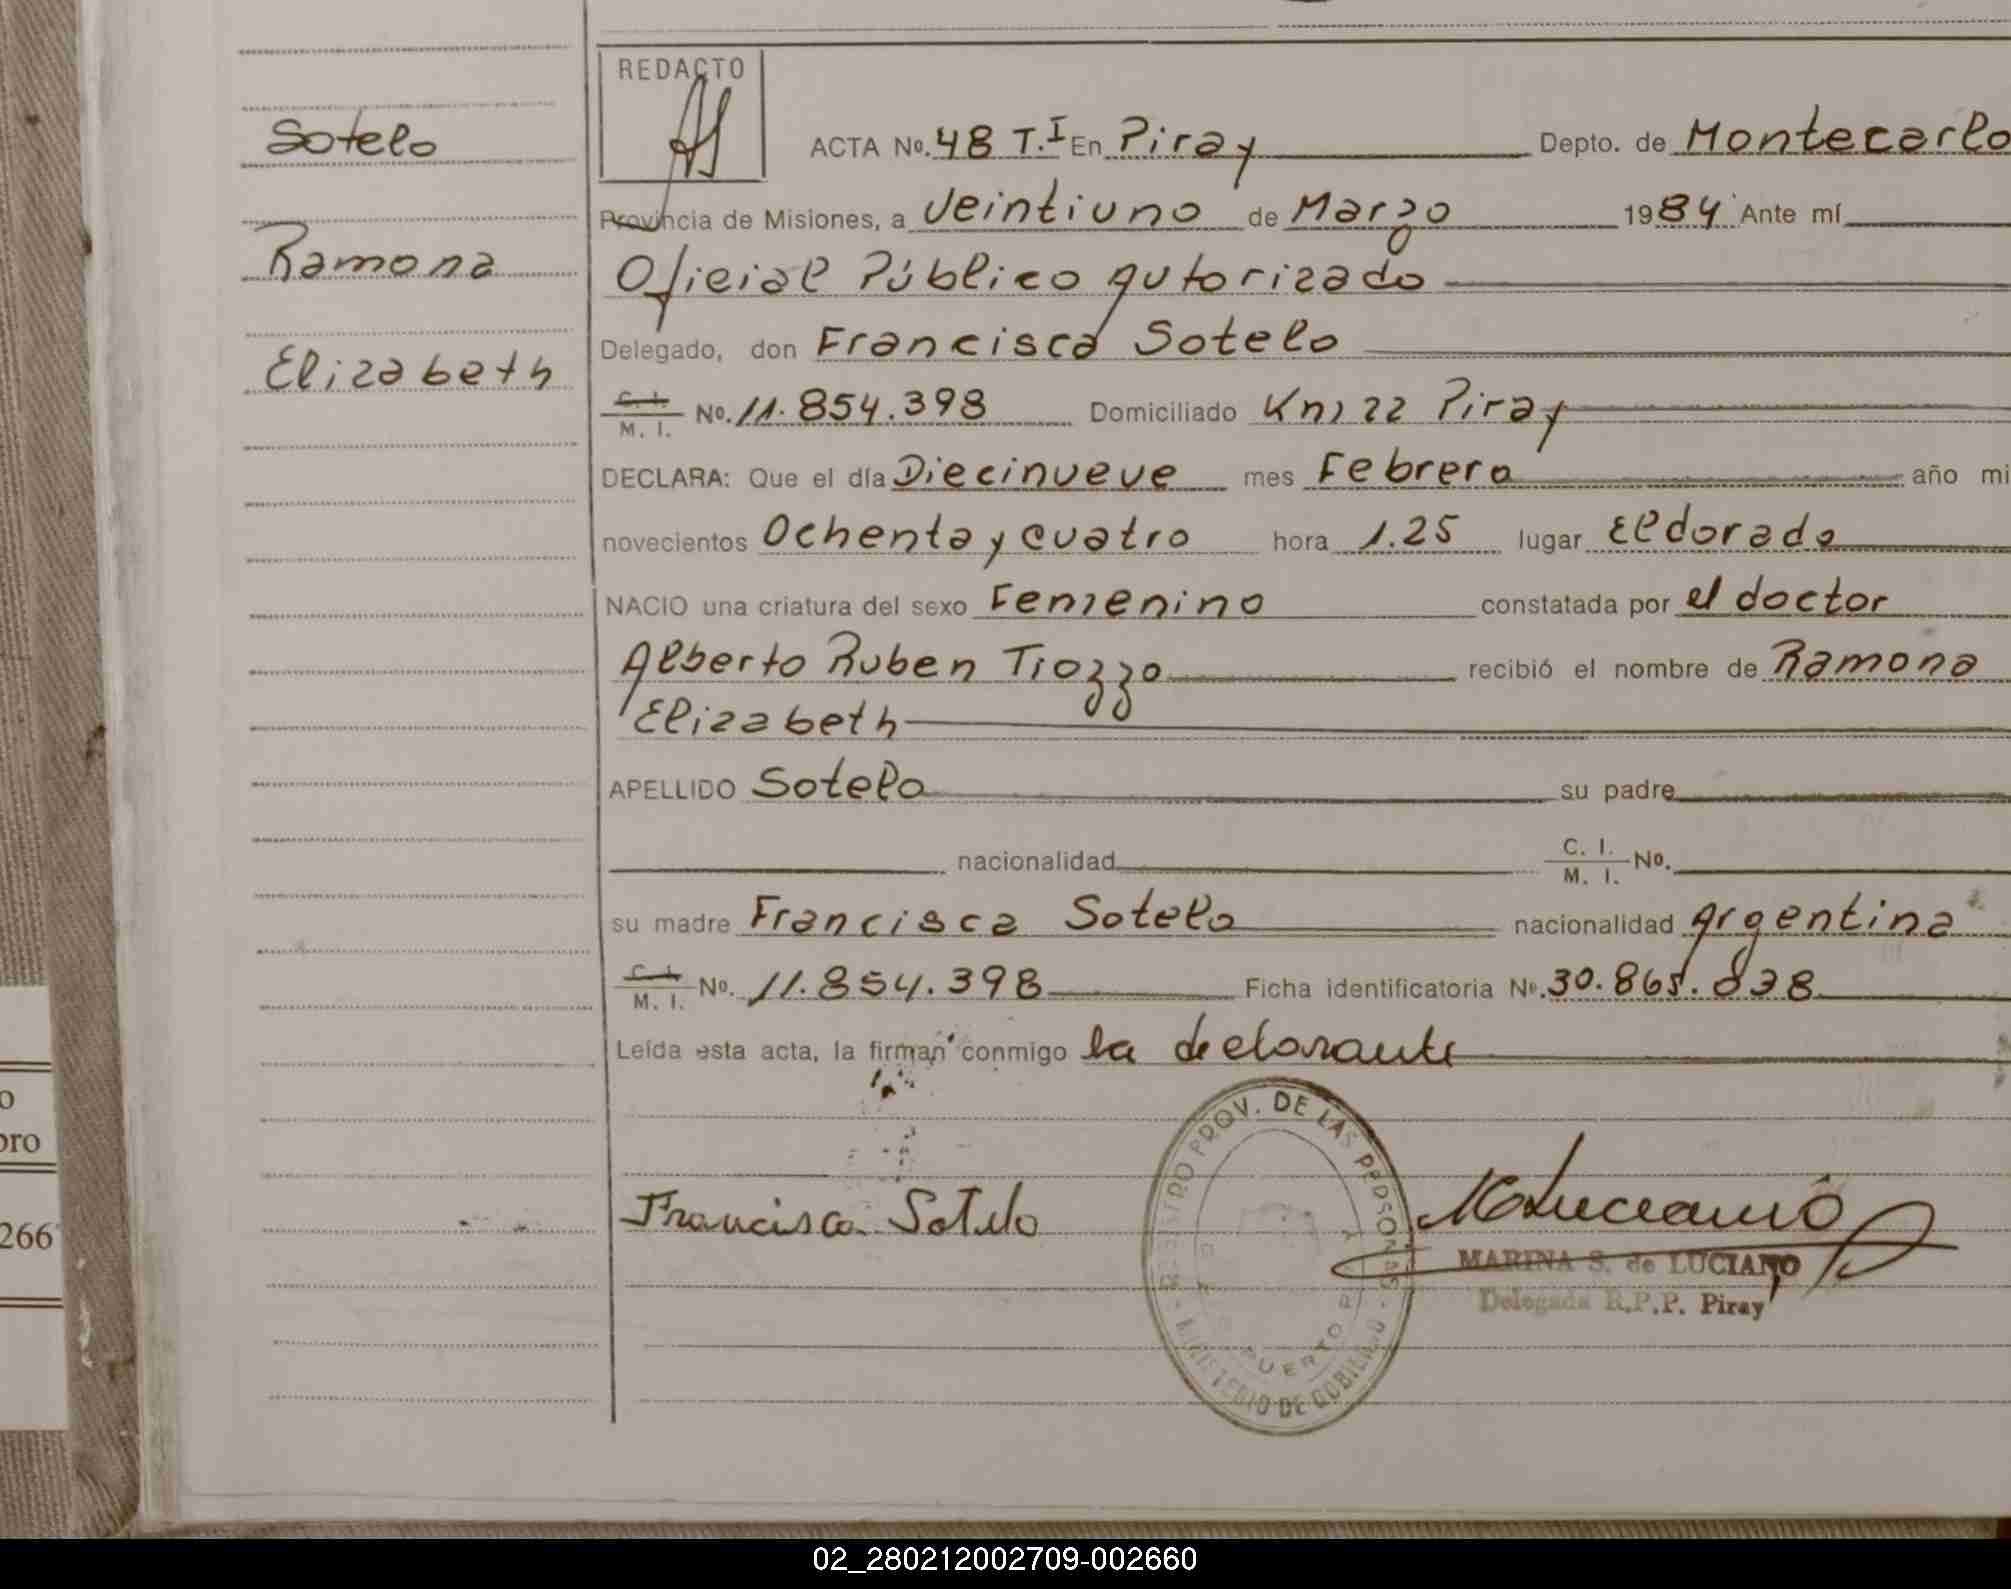 Sotelo
Ramona
Elizabeth
REDACTO
ACTA No. 48 T.I En Piray Depto. de Montecarlo
Provincia de Misiones, a Veintiuno de Marzo 1984 Ante mí
Oficial Público Autorizado
Delegado, don Francisca Sotelo
C. I.
M. I. No. 11.854.398 Domiciliado Km 22 Piray
DECLARA: Que el día Diecinueve mes Febrero año mi
novecientos Ochenta y cuatro hora 1.25 lugar Eldorado
NACIO una criatura del sexo Femenino constatada por el doctor
Alberto Ruben Tiozzo recibió el nombre de Ramona
Elizabeth
APELLIDO Sotelo su padre
nacionalidad C. I.
M. I. No.
su madre Francisca Sotelo nacionalidad Argentina
C. I.
M. I. No. 11.854.398 Ficha identificatoria No. 30.865.838
Leída esta acta, la firman conmigo la declarante
Francisca Sotelo
REGISTRO PROV. DE LAS PERSONAS
MINISTERIO DE GOBIERNO
PUERTO
MARINA S. de LUCIANO
Delegada R.P.P. Piray
o
bro
266
02_280212002709-002660